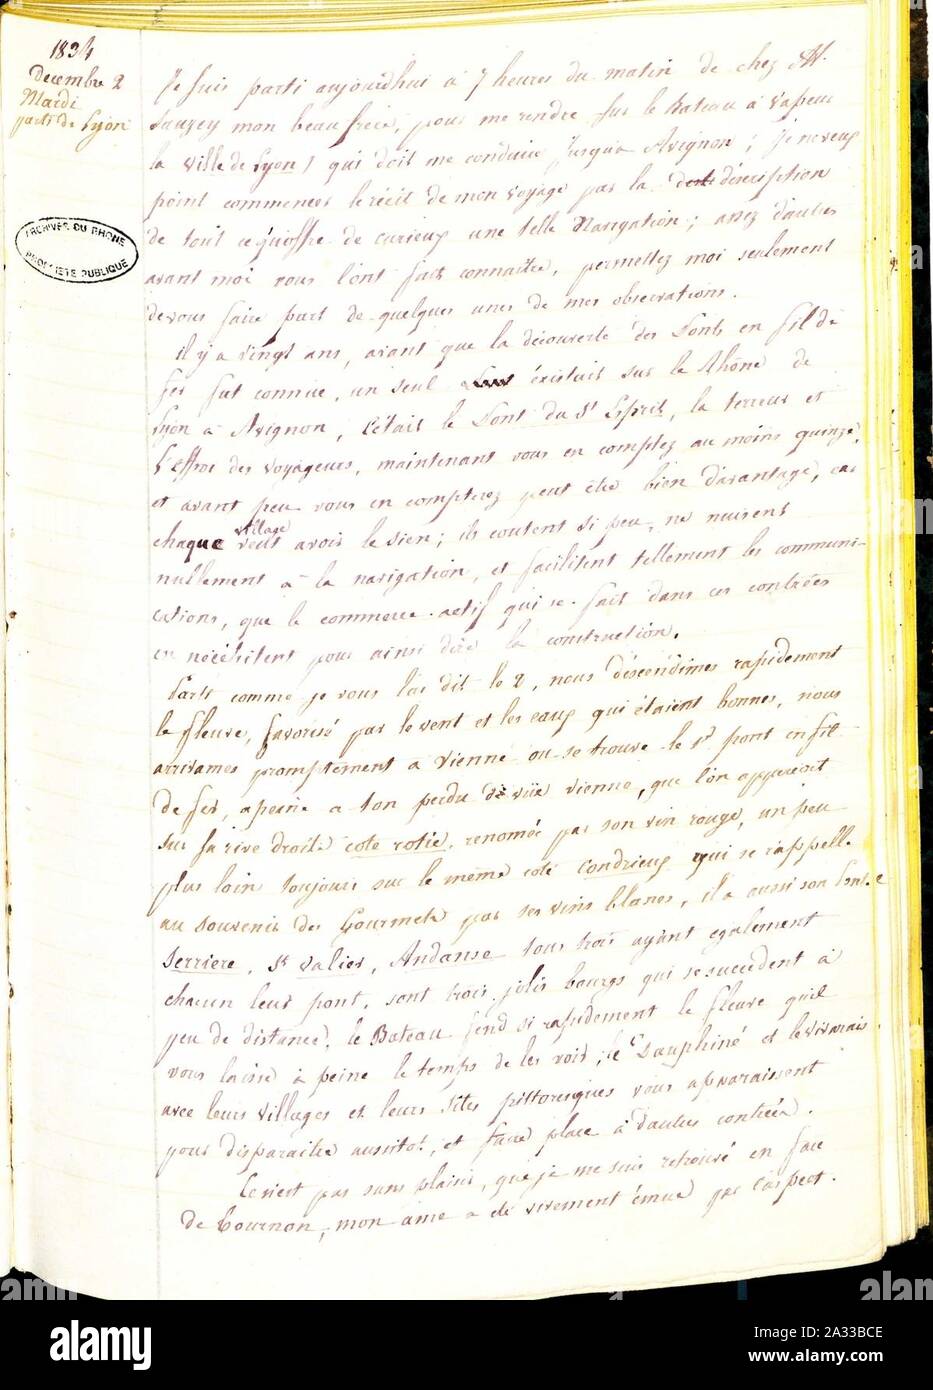 1834
Decembre 2
Mardi
parti de Lyon
ARCHIVES DU RHONE
PROPRIETE PUBLIQUE
Je suis parti aujourdhui à 7 heures du matin de chez Mr.
Sauzey mon beaufrere, pour me rendre sur le Bateau à vapeur
la ville de Lyon) qui doit me conduire jusqu'a Avignon ; je ne veux
point commencer le récit de mon voyage par la description
de tout cequ'offre de curieux une telle Navigation ; assez d'autres
avant moi vous l'ont fait connaitre, permettez moi seulement
devous faire part de quelques unes de mes observations.
il y a vingt ans, avant que la découverte des Ponts en fil de
fer fut connue, un seul existait sur le Rhône de
Lyon à Avignon, c'était le Pont du St Esprit, la terreur et
l'effroi des voyageurs, maintenant vous en comptez au moins quinze,
et avant peu vous en compterez peut être bien davantage, car
chaque village veut avoir le sien ; ils coutent si peu, ne nuisent
nullement à la navigation, et facilitent tellement les communi-
cations, que le commerce actif qui se fait dans ces contrées
en nécéssitent pour ainsi dire la construction.
Parti comme je vous l'ai dit le 2, nous descendimes rapidement
le fleuve, favorisé par le vent et les eaux qui étaient bonnes, nous
arrivames promptement a Vienne ou se trouve le 1r pont en fil
de fer, apeine a ton perdu de vüe Vienne, que l'on apperçoit
sur sa rive droite cote rotie, renomée par son vin rouge, un peu
plus loin toujours sur le même coté Condrieux qui se rappelle
au souvenir des Gourmets par ses vins blancs, il a aussi son Pont
Serriere, St Valier, Andanse tous trois ayant egalement
chacun leur pont, sont trois jolis bourgs qui se succedent à
peu de distance, le Bateau fend si rapidement le fleuve qu'il
vous laisse à peine le temps de les voir ; le Dauphiné et le vivarais
avec leurs villages et leurs sites pittoresques vous apparaissent
pour disparaitre aussitot, et faire place à d'autres contrées.
Ce n'est pas sans plaisir, que je me suis retrouvé en face
de Tournon, mon ame a été vivement émue par l'aspect
alamy
Image ID: 2A33BCE
www.alamy.com